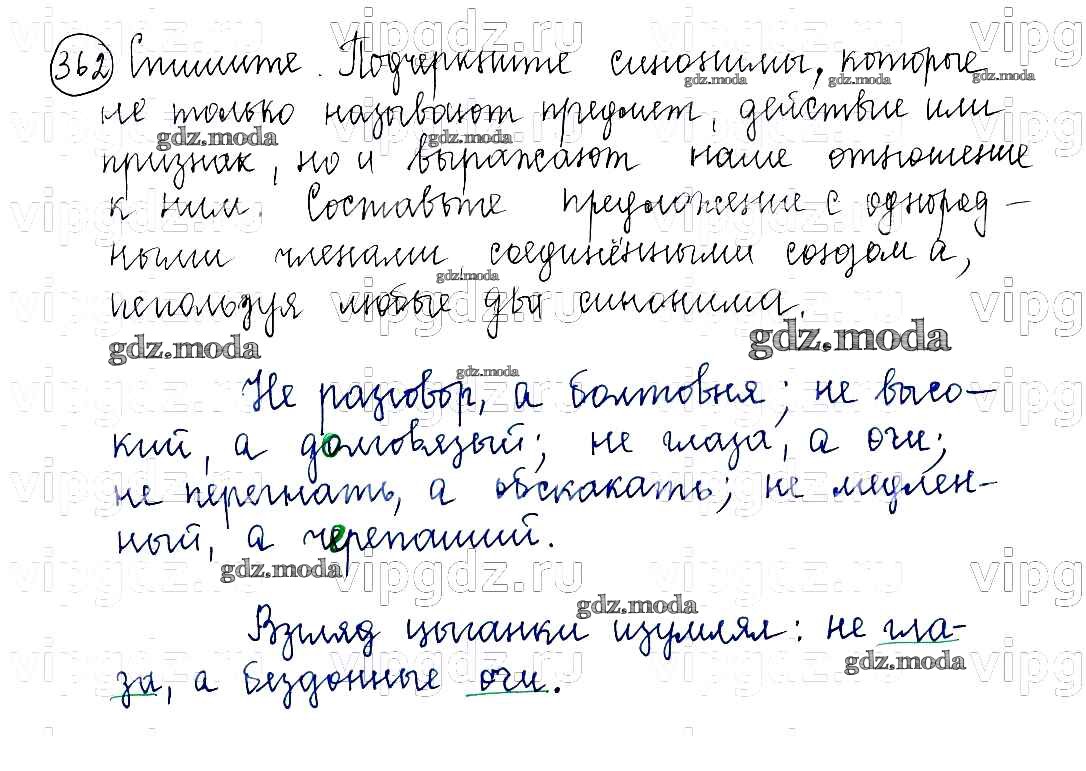 362 Спишите. Подчеркните синонимы, которые
не только называют предмет, действие или
признак, но и выражают наше отношение
к ним. Составьте предложение с однород-
ными членами соединёнными союзом а,
используя любые два синонима.
Не разговор, а болтовня; не высо-
кий, а долговязый; не глаза, а очи;
не перегнать, а обскакать; не медлен-
ный, а черепаший.
Взгляд цыганки изумлял: не гла-
за, а бездонные очи.